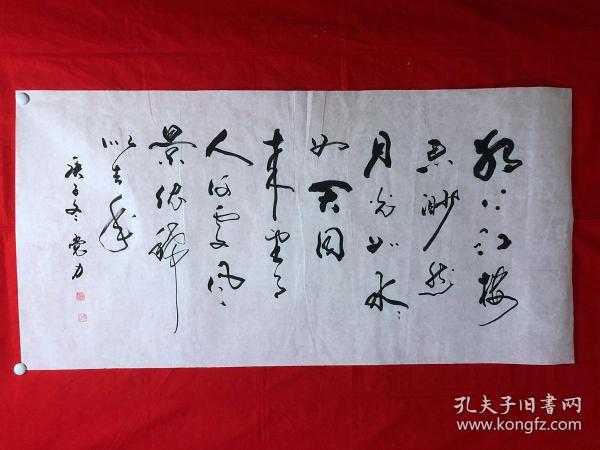 独上江楼
思渺然
月光如水々
如天同
来望月
人何处风
景依稀
似去年
庚子冬
孔夫子旧书网
www.kongfz.com